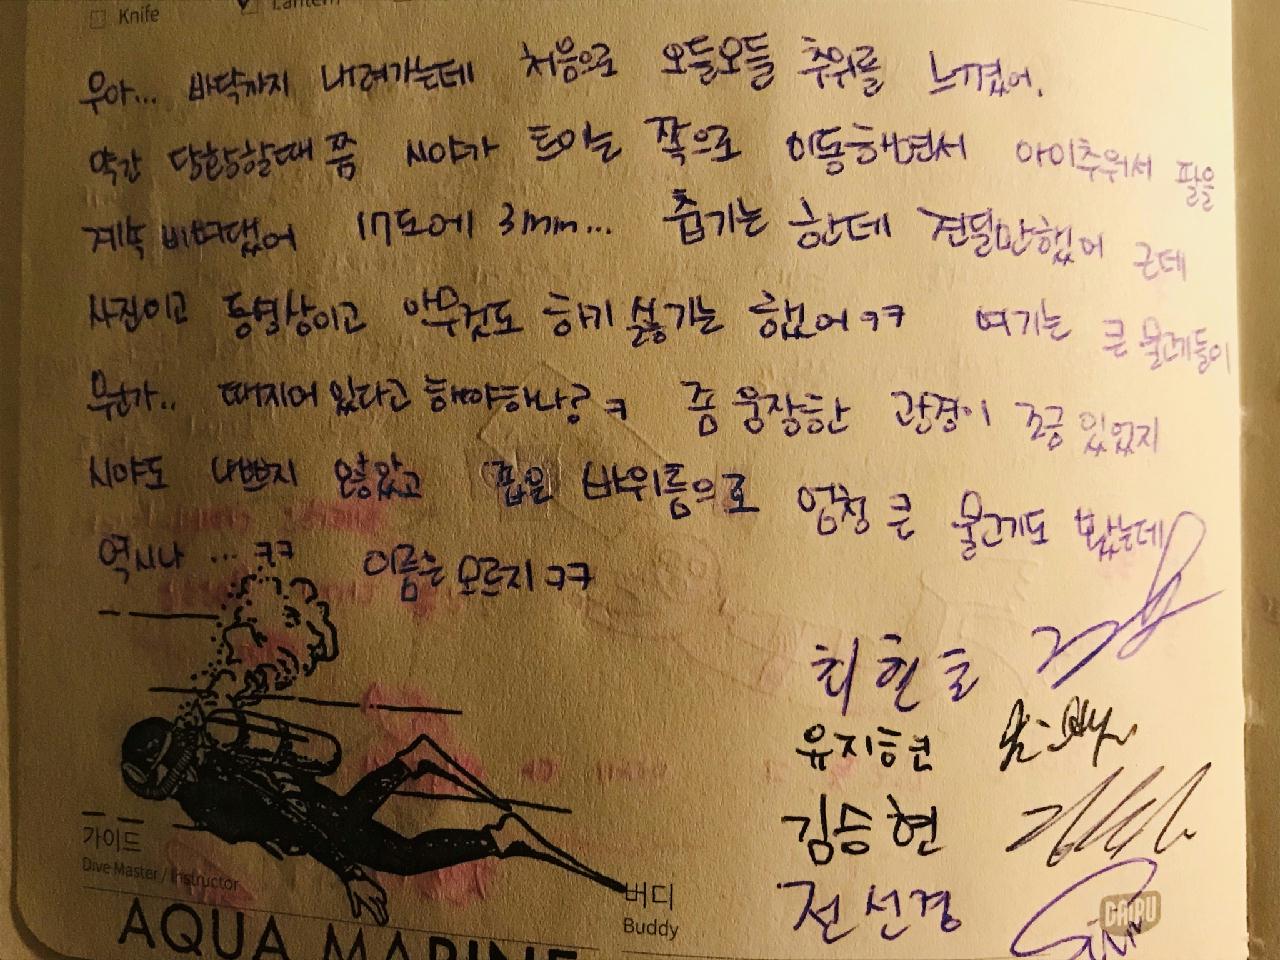 Knife
Lantern
우아... 바닥까지 내려가는데 처음으로 오들오들 추위를 느꼈어.
약간 당황할때쯤 시야가 트이는 쪽으로 이동해면서 아이추워서 팔을
계속 비벼댔어 17도에 3mm... 춥기는 한데 견딜만했어 근데
사진이고 동영상이고 아무것도 하기 싫기는 했어ㅋㅋ 여기는 큰 물고기들이
뭔가.. 때지어 있다고 해야하나? ㅋ 좀 웅장한 광경이 조금 있었지
시야도 나쁘지 않았고 좁은 바위틈으로 엄청 큰 물고기도 봤는데
역시나 ... ㅋㅋ 이름은 모르지 ㅋㅋ
유지현
김승현
전선경
가이드
Dive Master / Instructor
버디
Buddy
AQUA MARINE